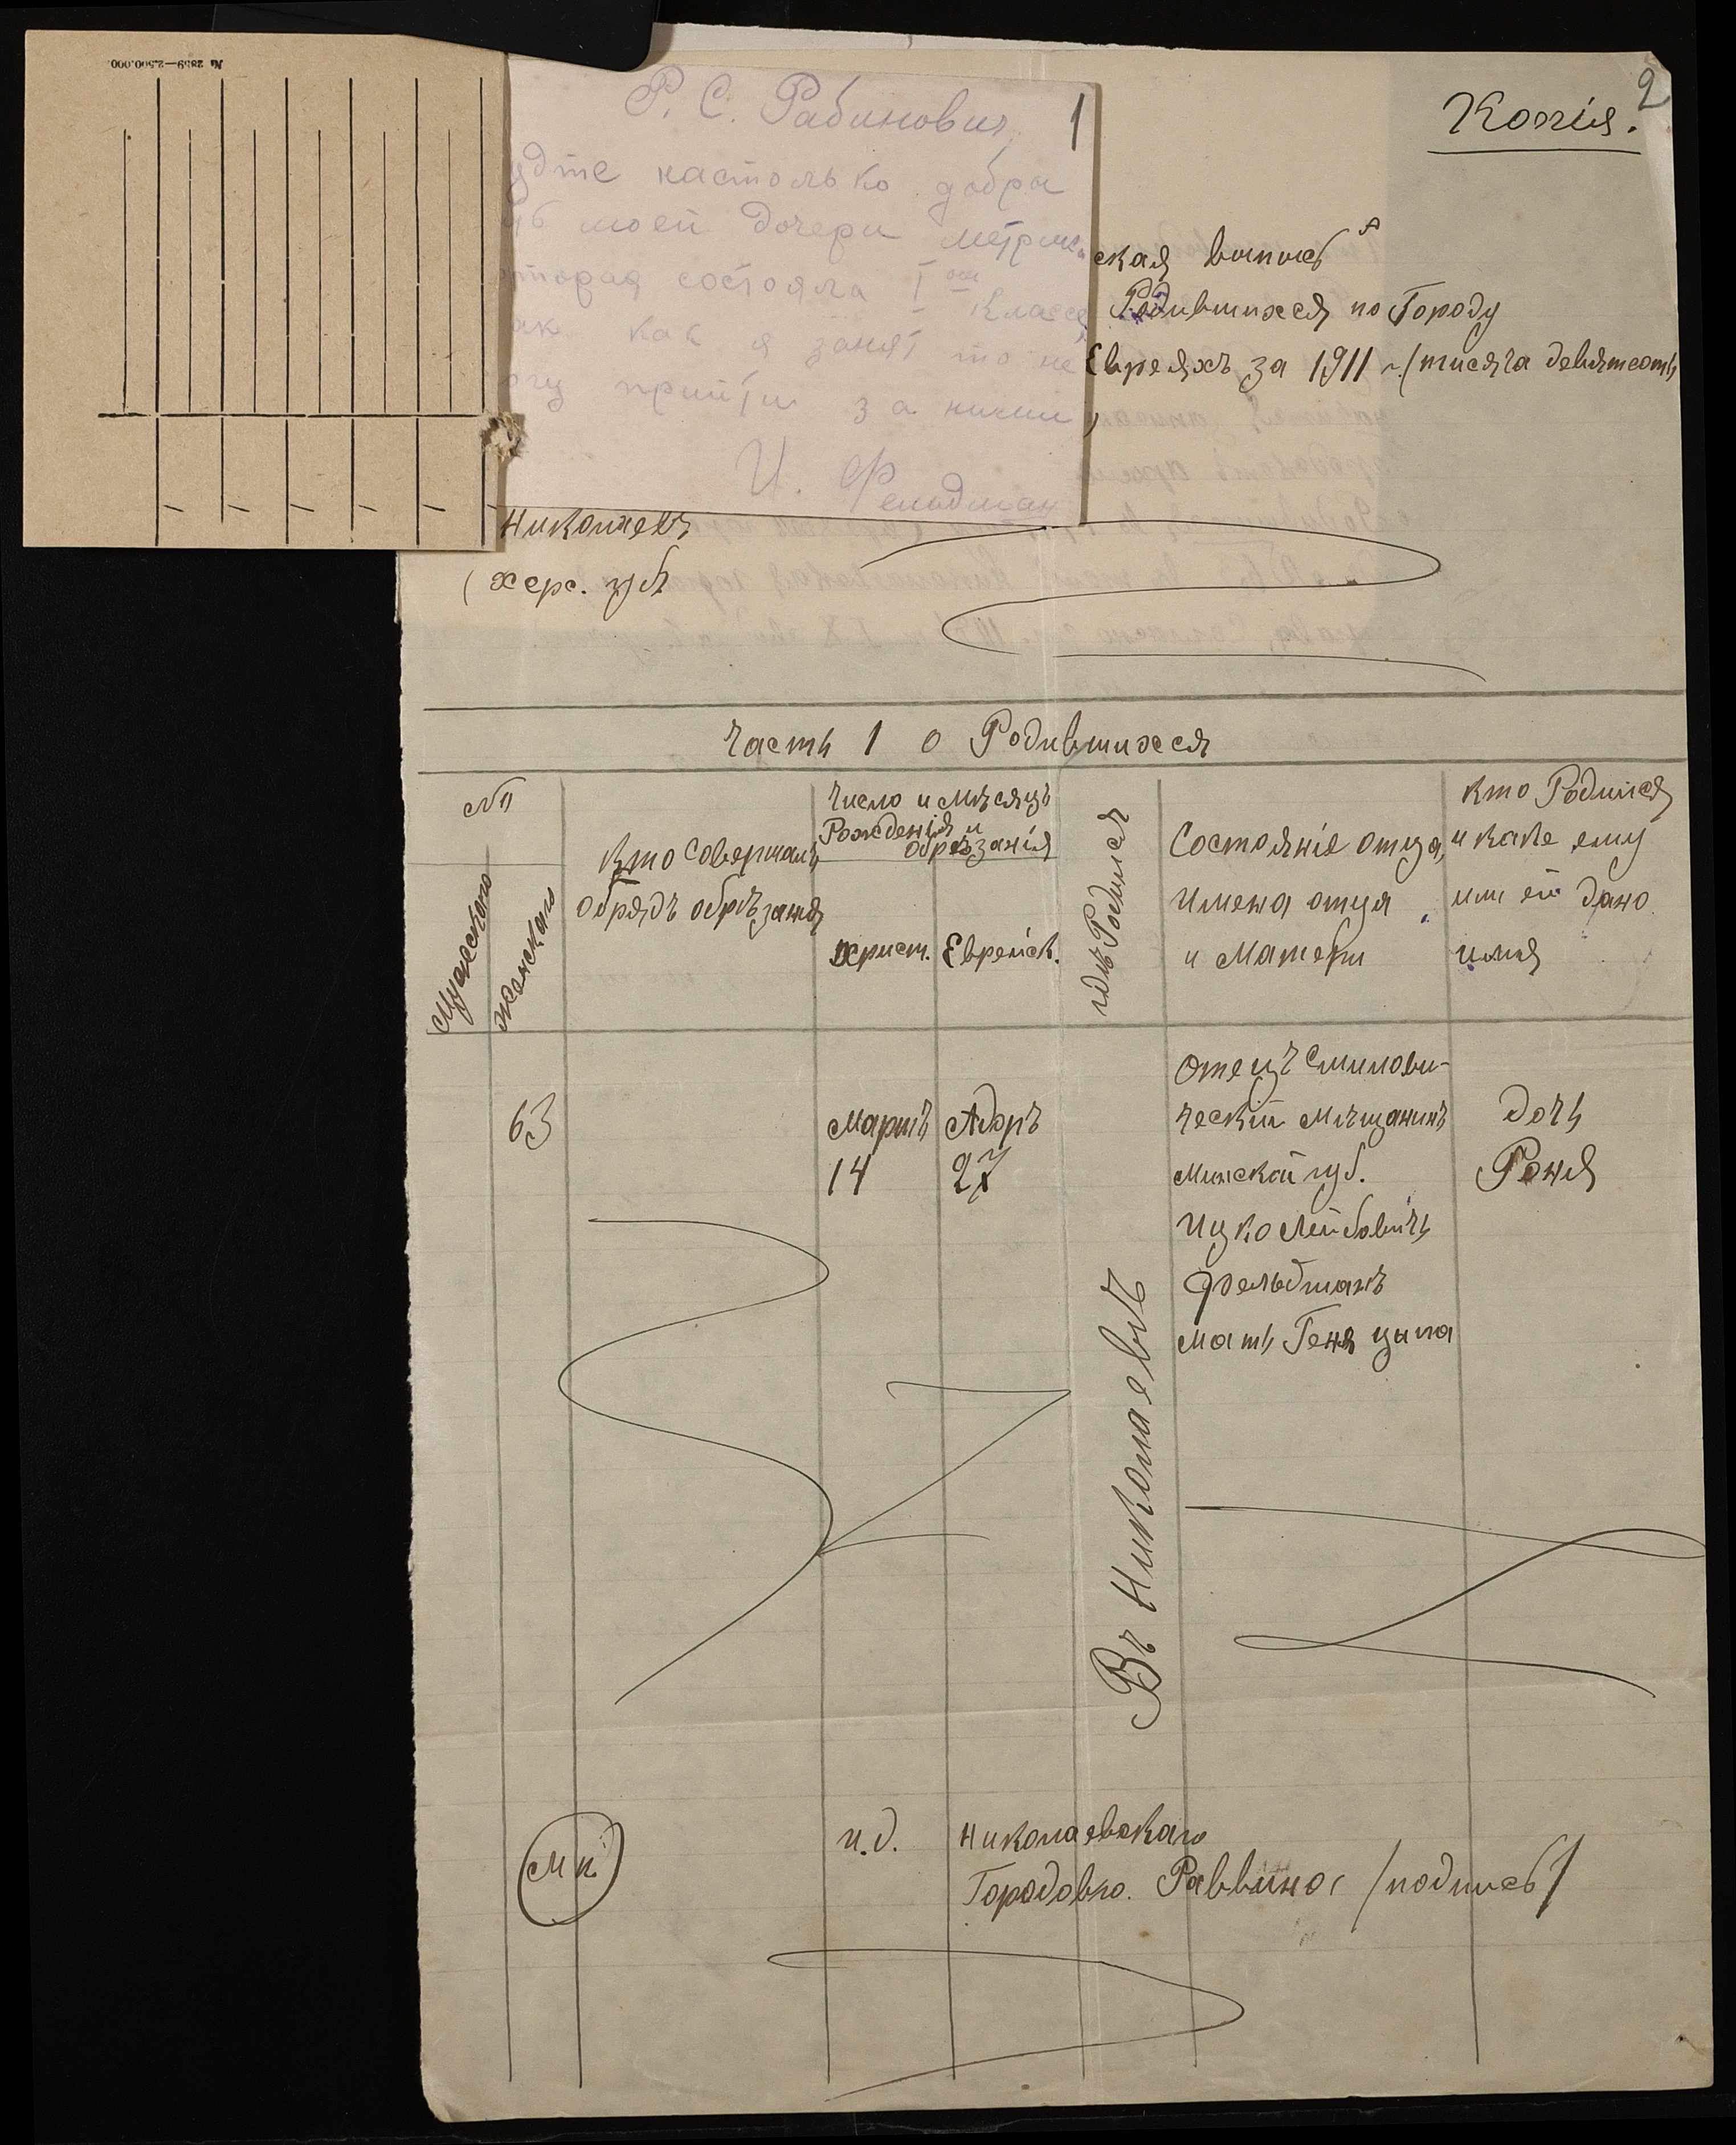 № 2859—2.500.000.
Р. С. Рабинович
1
удте настолько добры
моей дочери метрик.
оторая состояла I ом классе
ак как я занят то не
огу прийти за ними
И. Фельдман
2
Копія.
ская выпись
Родившихся по Городу
Евреяхъ за 1911 г. (тысяча девятсоть
Николаевъ
(херс. губ
Часть 1 о Родившихся
№
Мужескаго
женскаго
Кто Совершалъ
обрядъ обрѣзанія
Число и Мѣсяцъ
Рожденія и
обрѣзанія
христ.
Еврейск.
гдѣ Родился
Состояніе отца,
имена отца
и Матери
Кто Родился
и какое ему
или ей дано
имя
63
Мартъ
14
Адоръ
27
Въ Николаевѣ
Отецъ Смилови-
ческій Мѣщанинъ
Минской губ.
Ицко Лейбовичъ
Фельдманъ
Мать Геня цыпа
дочь
Роня
М п.
и.д. Николаевскаго
Городового. Раввина (подпись)